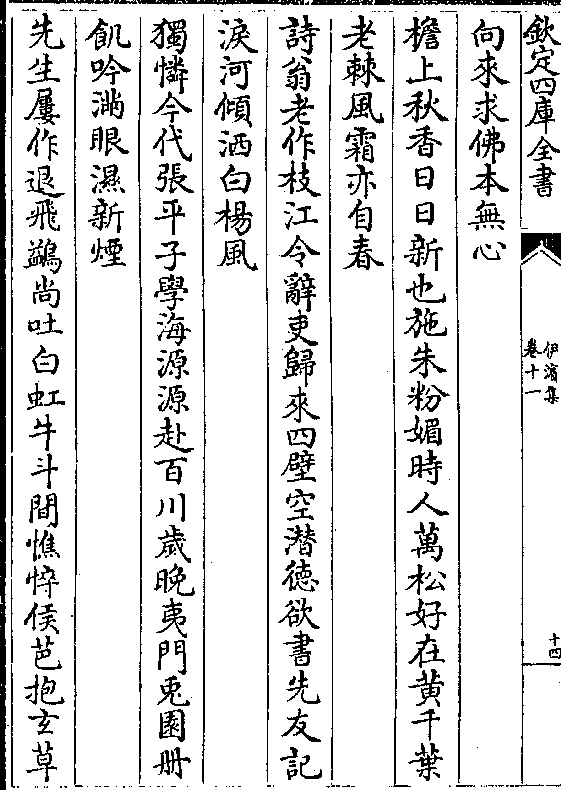 欽定四庫全書
伊濱集
卷十一
十四
向來求佛本無心
檐上秋香日日新也施朱粉媚時人萬松好在黄千葉
老棘風霜亦自春
詩翁老作枝江令辭吏歸來四壁空潜德欲書先友記
淚河傾洒白楊風
獨憐今代張平子學海源源赴百川歲晚夷門兎園册
飢吟滿眼濕新煙
先生屢作退飛鷁尚吐白虹牛斗間憔悴侯芭抱玄草